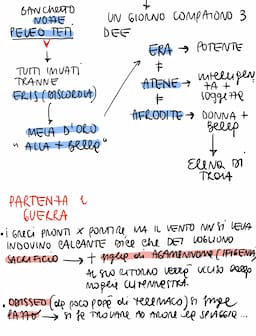 BANCHETTO
NOZZE
PELEO TETI
TUTTI INVITATI
TRANNE
ERIS (DISCORDIA)
MELA D'ORO
"ALLA + BELLA"
UN GIORNO COMPAIONO 3
DEE
ERA → POTENTE
≠
ATENE → intelligen
TA + 
saggetta
≠
AFRODITE → DONNA +
BELLA
ELENA DI
TROIA
PARTENZA X
GUERRA
• I GRECI PRONTI X PARTIRE, MA IL VENTO NN SI LEVA
INDOVINO CALCANTE DICE CHE DEI VOGLIONO
SACRIFICIO → + figlia di AGAMENNONE (IFIGENIA)
AL SUO RITORNO VERRÀ UCCISO DALLA
MOGLIE CLITENNESTRA.
• ODISSEO (da poco papà di TELEMACO) SI finge
PAZZO → SI FA TROVARE